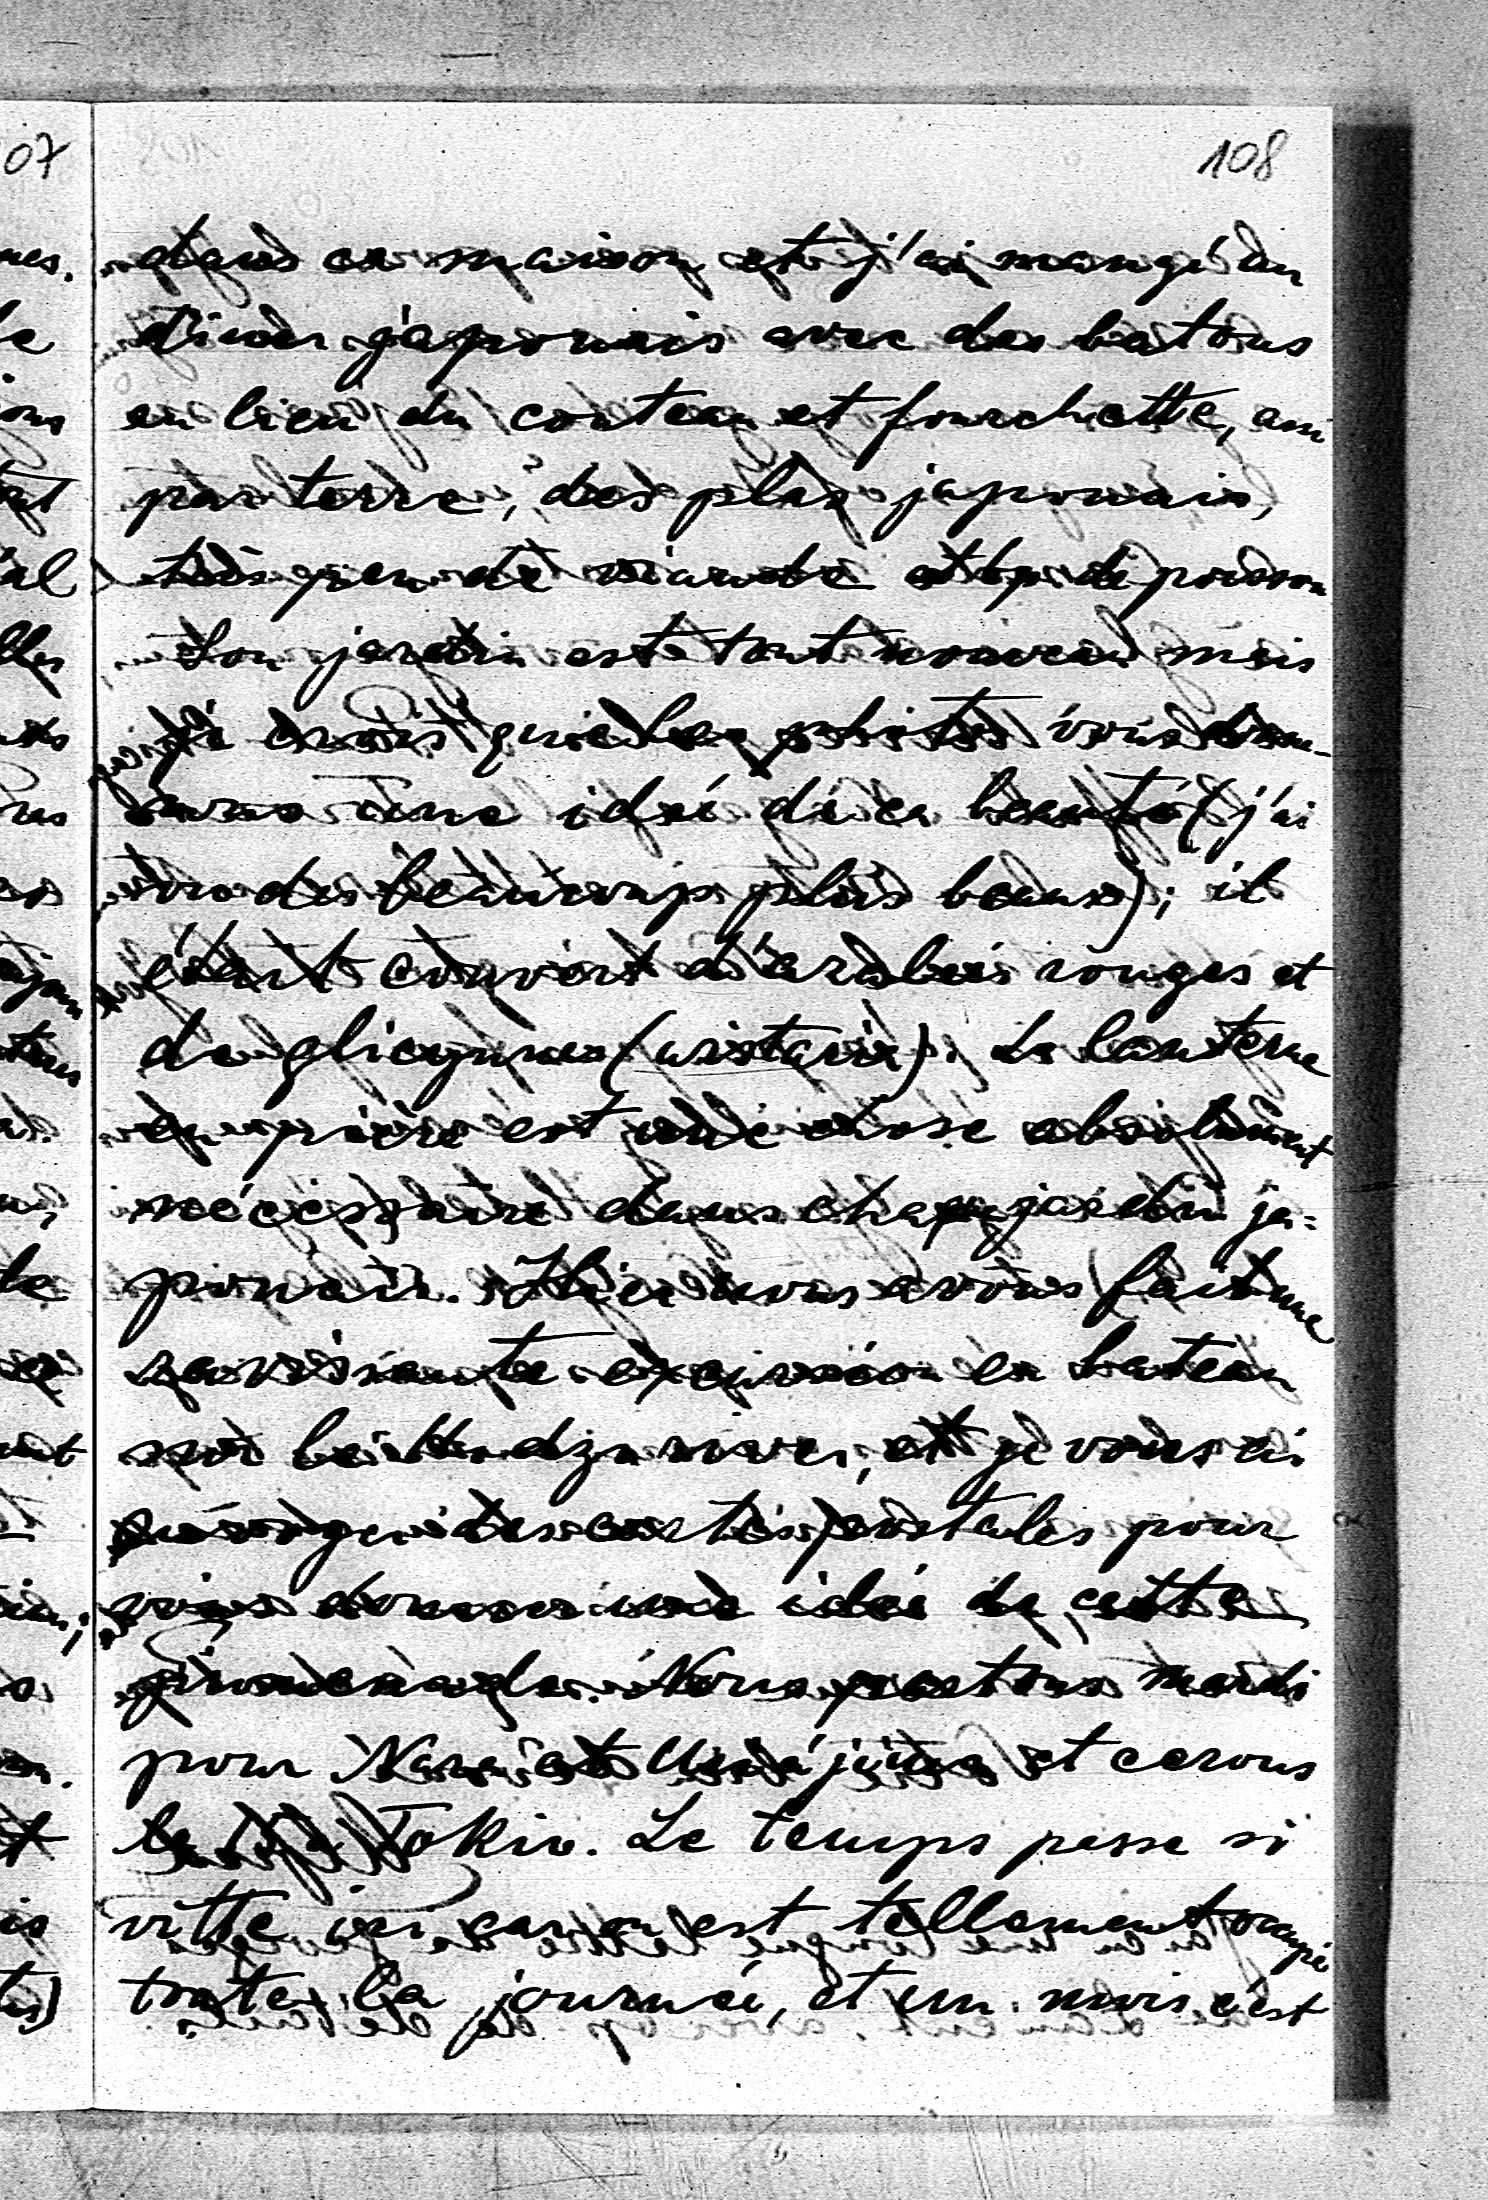 108
dans ca maison et j'ai mangé un
diner japonais avec des batons
en lieu du couteau et fourchette, assi
par terre, des plas japonais,
très peu de viande et bp de poisson
Son jardin est tout nouveau mais
je crois que les photos vous donne-
rons une idéi de ca beauté (j'ai
vu des beaucoup plus beaux); il
était couvert d'arables rouges et
de glicynnes (wistaria). La lanterne
en pierre est une chose absolument
nécéssaire dans chaque jardin ja=
ponais. Hier nous avons fait une
ravissante excursion en bateau
sur le river, et je vous ai
envoyé des cartes postales pour
vous donner une idéi de cette
promenade. Nous partons mardi
pour Nara et et cerons
le à Tokio. Le temps passe si
vitte ici car on est tellement occupé
toute la journéi, et un mois c'est
107